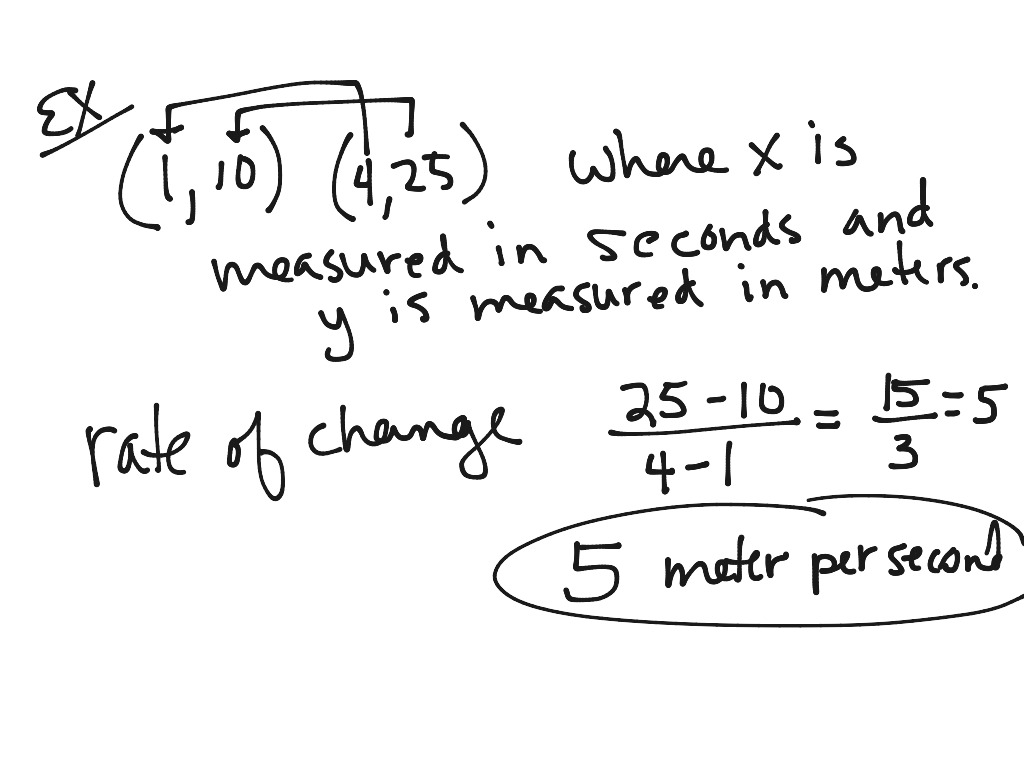 EX
(1, 10) (4, 25) where x is
measured in seconds and
y is measured in meters.
rate of change 25 - 10 / 4 - 1 = 15 / 3 = 5
5 meter per second